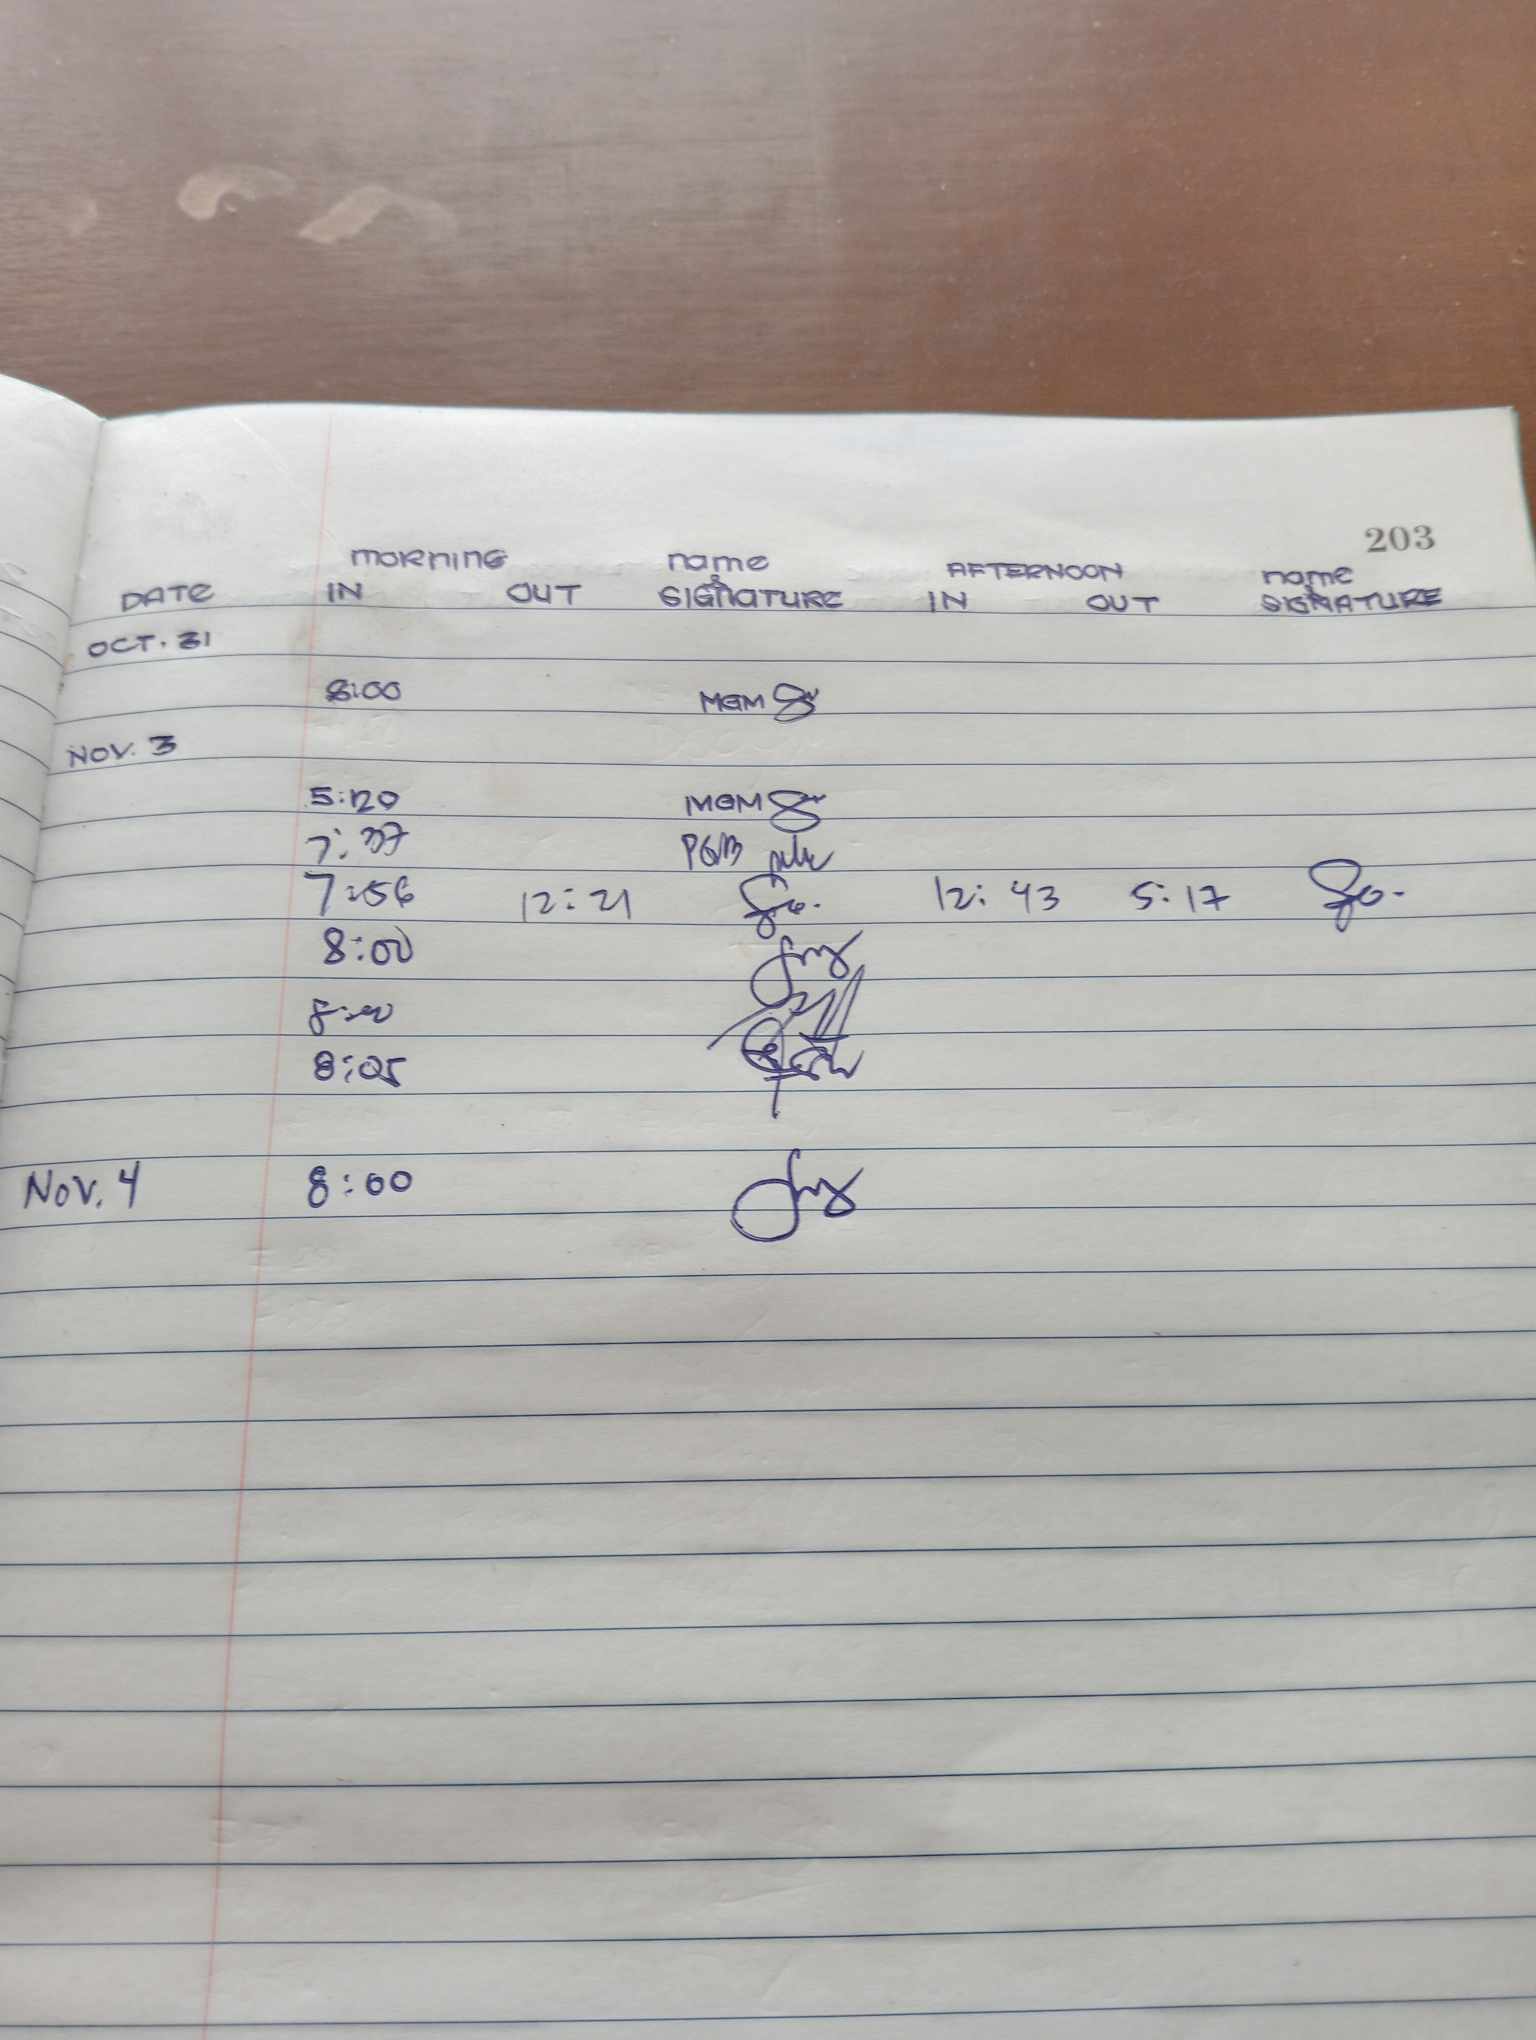 203
MORNING name AFTERNOON name
DATE IN OUT & SIGNATURE IN OUT & SIGNATURE
OCT. 31
8:00 MGM
NOV. 3
5:20 MGM
7:37 PGB
7:56 12:21 12:43 5:17
8:00
8:00
8:05
Nov. 4 8:00